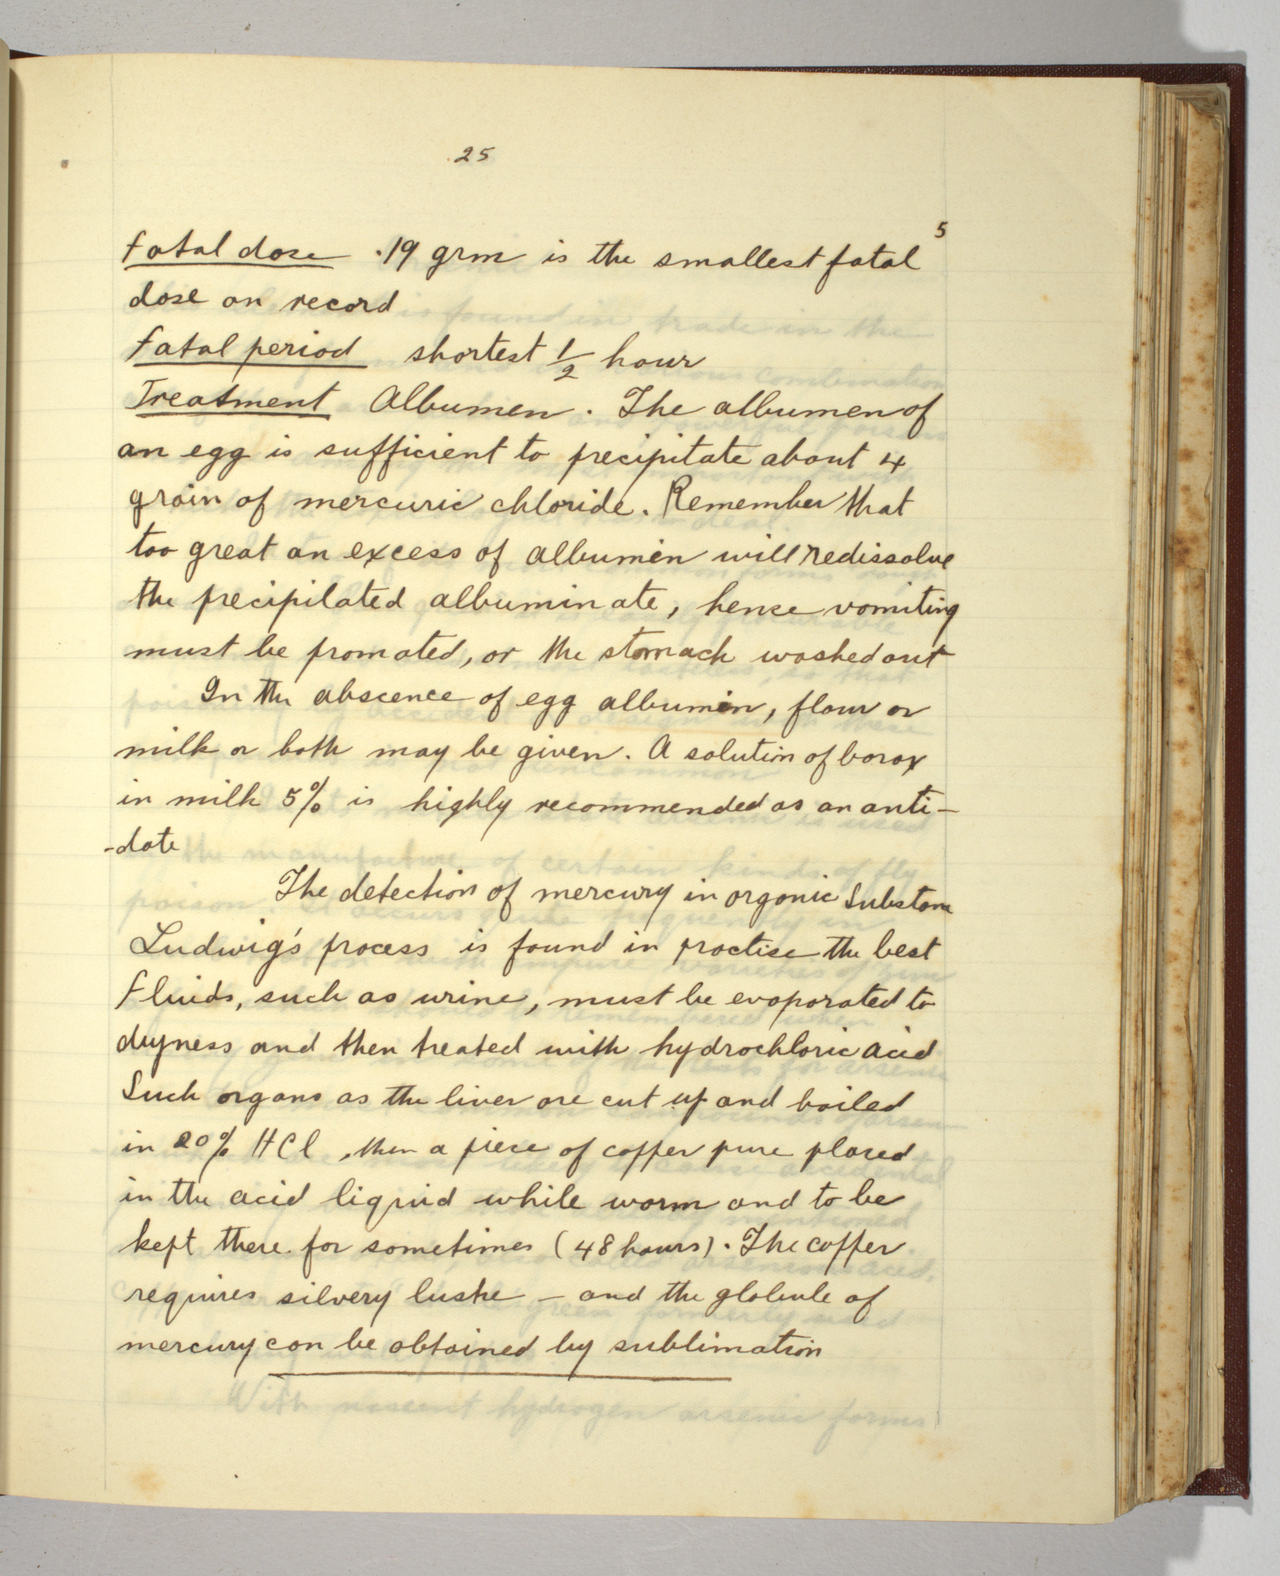 25
5
Fatal dose .19 grm is the smallest fatal
dose on record
Fatal period shortest 1/2 hour
Treatment Albumen. The albumen of
an egg is sufficient to precipitate about 4
grain of mercuric chloride. Remember that
too great an excess of albumin will redissolve
the precipitated albuminate, hence vomiting
must be promoted, or the stomach washed out
In the abscence of egg albumin, flour or
milk or both may be given. A solution of borax
in milk 5% is highly recommended as an anti-
-dote
The detection of mercury in organic Substance
Ludwig's process is found in practise the best
Fluids, such as urine, must be evaporated to
dryness and then treated with hydrochloric acid
Such organs as the liver are cut up and boiled
in 20% HCl, then a piece of copper pure placed
in the acid liquid while warm and to be
kept there for sometimes (48 hours). The copper
requires silvery lustre - and the globule of
mercury can be obtained by sublimation